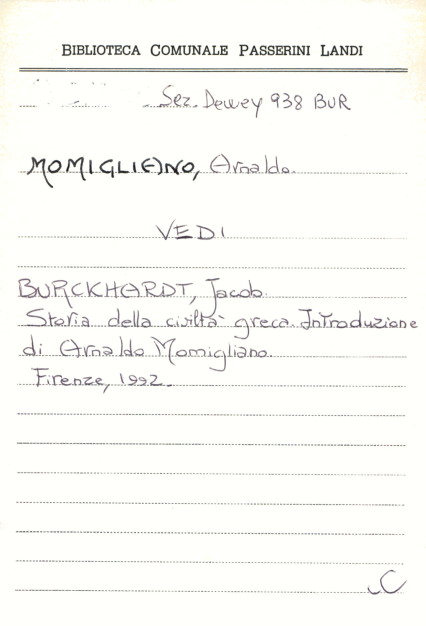 BIBLIOTECA COMUNALE PASSERINI LANDI
Sez. Dewey 938 BUR
MOMIGLIANO, Arnaldo.
VEDI
BURCKHARDT, Jacob.
Storia della civiltà greca. Introduzione
di Arnaldo Momigliano.
Firenze, 1992.
C